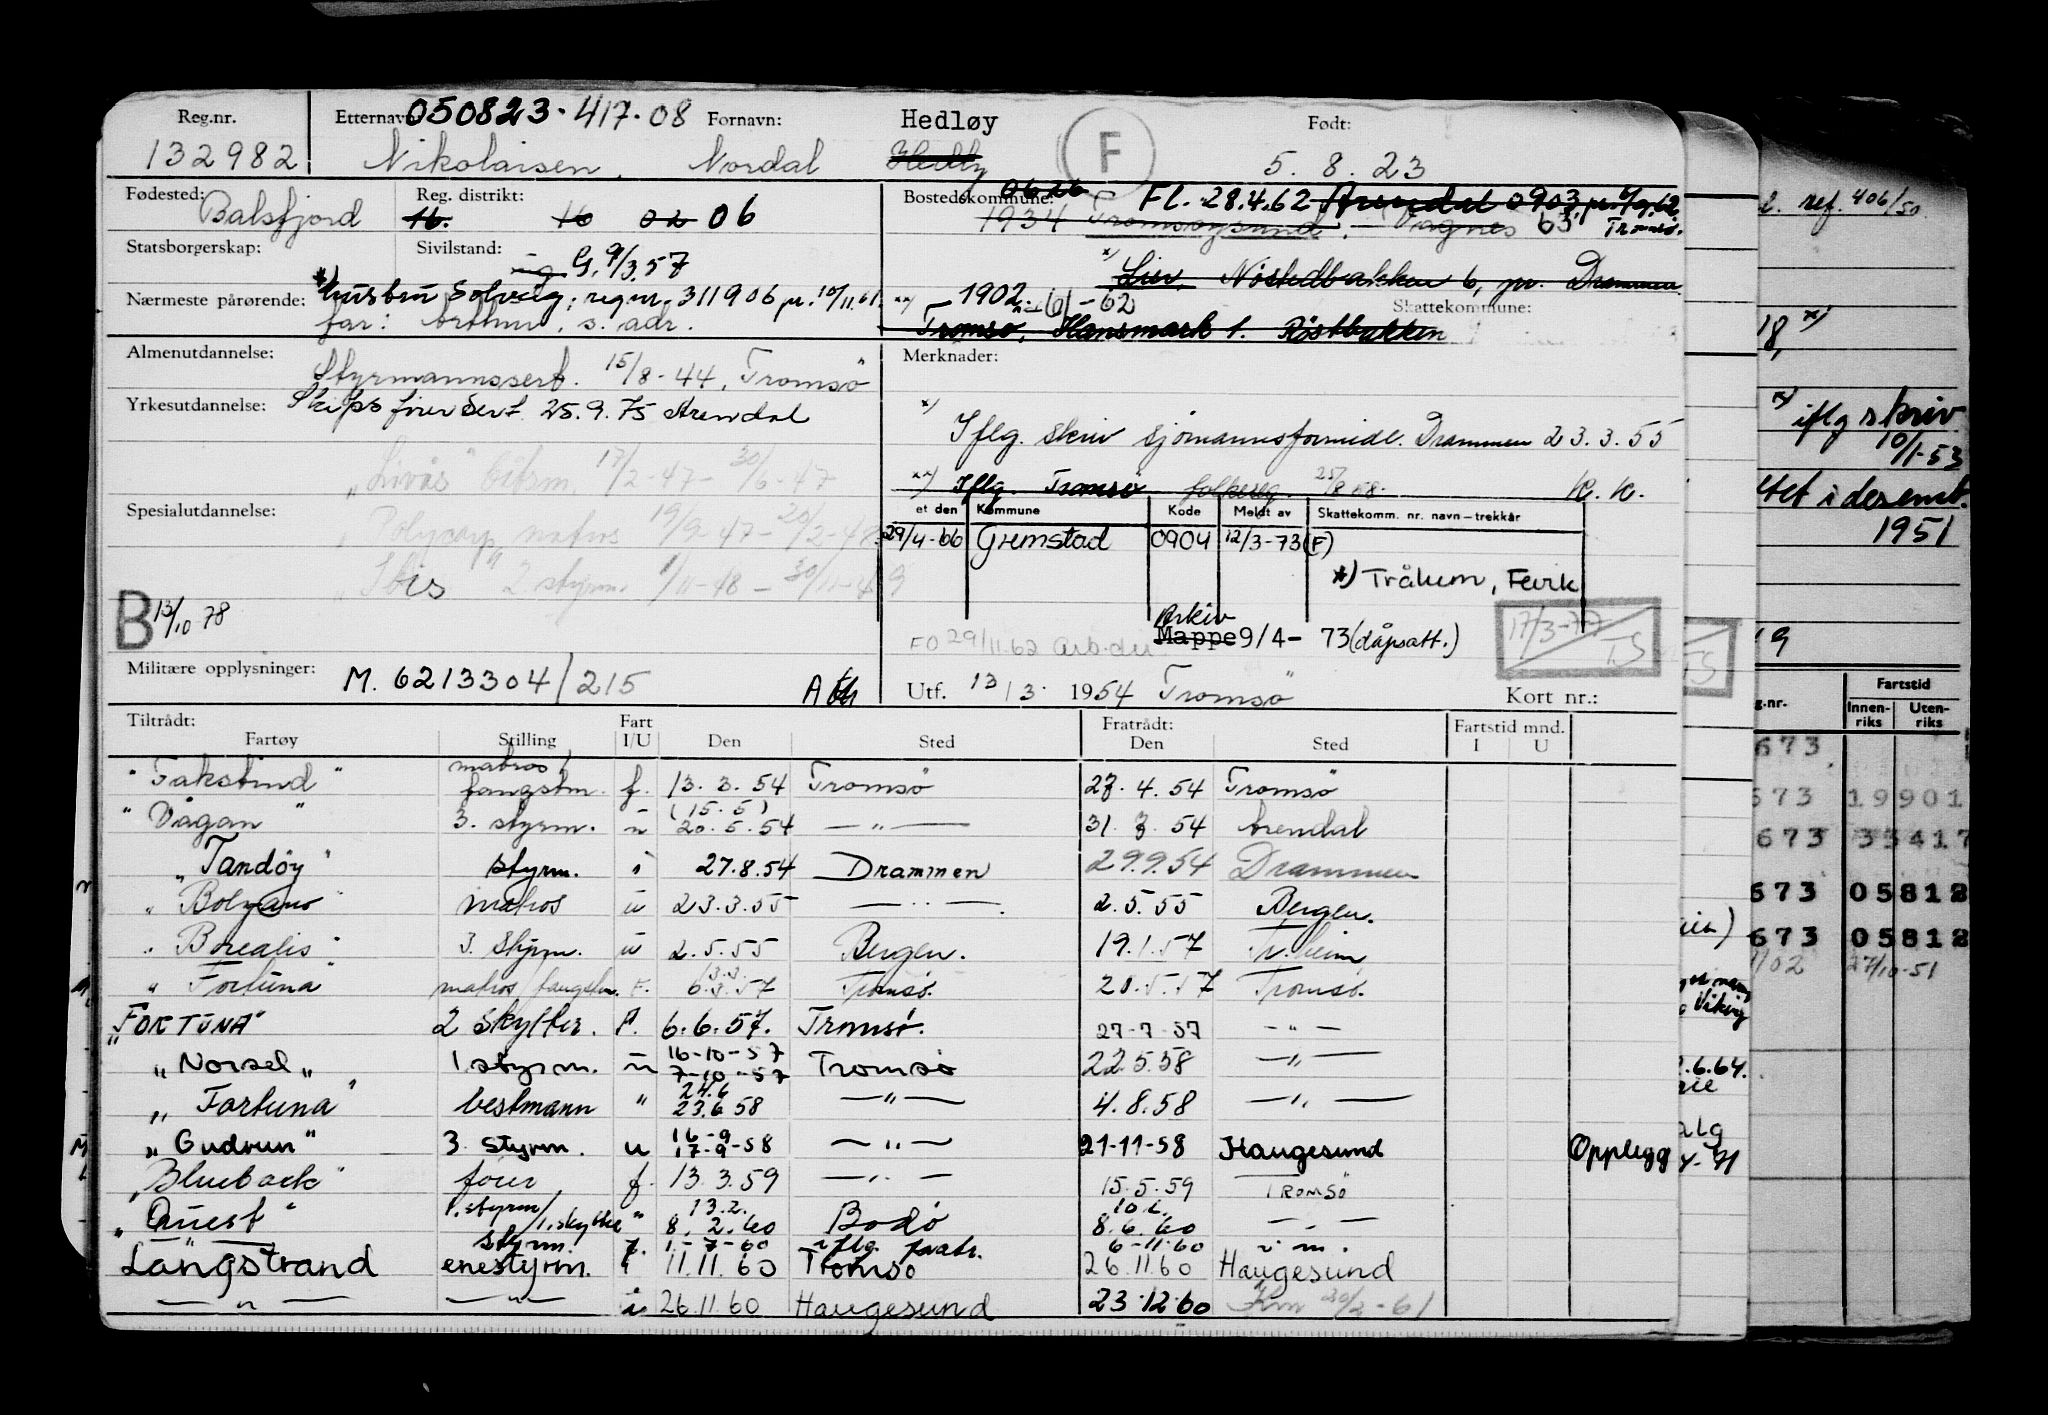 Reg.nr. Etternavn 050823-417-08 Fornavn: Hedløy F Født:
132982 Nikolaisen, Nordal 5.8.23
Fødested: Balsfjord Reg. distrikt: 16. 16 02 06
Bostedskommune: 0626 Fl. 28.4.62 Arendal 0903
1934 Tromsøysund. Vågnes 63 Tromsø.
Statsborgerskap: Sivilstand: ug G. 9/3.57
*) Lier, Nøstedbakken 6, pr. Drammen
Nærmeste pårørende: *) hustru Solveig: regnr. 311906 pr. 10/11.61
far: Arthur, s. adr.
**) 1902 - 61 - 62 Skattekommune:
Tromsø, Hansmark 1. Røstbakken
Almenutdannelse: Styrmannssert. 15/8-44, Tromsø
Merknader:
Yrkesutdannelse: Skipsførersert. 25.9.75 Arendal
*) Iflg. skriv sjömannsformidl. Drammen 23.3.55
"Livås" båtsm. 17/2-47 - 30/6-47
**) Iflg. Tromsø folkereg. 25/8 58. K. K.
Spesialutdannelse: "Polycarp" matros 19/9-47 - 20/2-48
et den Kommune Kode Meldt av Skattekomm. nr. navn - trekkår
29/4-66 Grimstad 0904 12/3-73 (F)
"Ibis" 2 styrm. 1/11-48 - 30/11-49
*) Trålum, Fevik
B 13/10 78
Arkiv
FO 29/11.62 Arb.dir Mappe 9/4-73 (dåpsatt.)
17/3-77 TS
Militære opplysninger: M. 6213304/215
Utf. 13/3. 1954 Tromsø Kort nr.:
Tiltrådt: Fart Fratrådt: Fartstid mnd.
Fartøy Stilling I/U Den Sted Den Sted I U
"Fakstind" matros/fangstm. f. 13.3.54 Tromsø 27.4.54 Tromsø
"Vågan" 3. styrm. u (15.5) 20.5.54 — " — 31.7.54 Arendal
"Tandöy" styrm. i 27.8.54 Drammen 29.9.54 Drammen
"Bolzano" matros u 23.3.55 — " — 2.5.55 Bergen.
"Borealis" 3. styrm. u 2.5.55 Bergen. 19.1.57 Tr.heim
"Fortuna" matros/fangstm. F. 3.3. 6.3.57 Tromsø. 20.5.57 Tromsø.
"FORTUNA" 2 skytter. F. 6.6.57. Tromsø. 27-7-57 — " —
"Norsel" 1. styrm. u 16-10-57 7-10-57 Tromsø 22.5.58 — " —
"Fortuna" bestmann " 24.6 23.6 58 — " — 4.8.58 — " —
"Gudrun" 3. styrm. u 16-9 17-9-58 — " — 21-11-58 Haugesund Opplegg
"Blueback" fører f. 13.3.59 — " — 15.5.59 TROMSÖ
"Quest" 1. styrm/1. skytter " 13.2. 8.2.60 Bodø 10.6. 8.6.60 — " —
— " — styrm. f. 1.-7-60 iflg. fratr. 6-11-60
Langstrand enestyrm. i 11.11.60 Tromsø 26.11.60 Haugesund
— " — — " — i 26.11.60 Haugesund 23.12.60 Km 20/2-61
ref. 406/50
18, *)
*) iflg skriv
10/1-53
1951
19
g.nr. Fartstid
Innenriks Utenriks
673
673 19901
673 33417
673 05812
673 05812
27/10-51
.6.64.